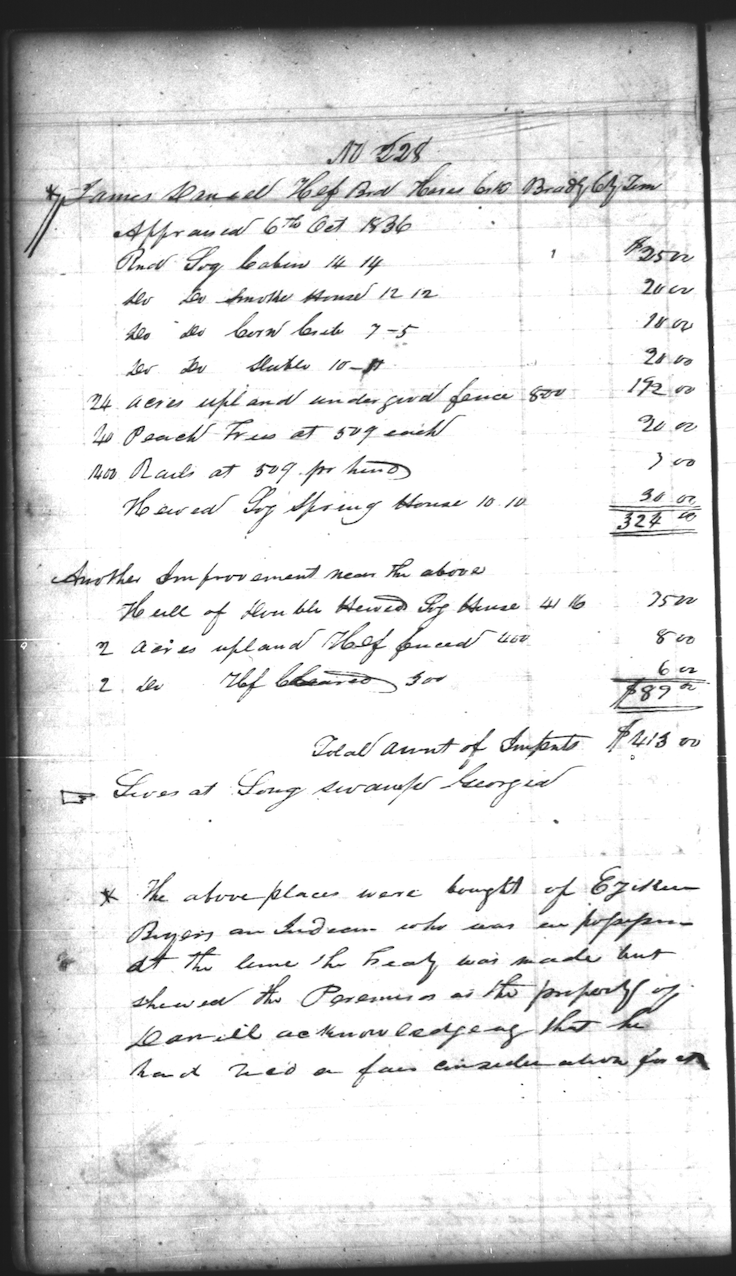 No 228
* James Daniel Hlf Brd Heires Crk Bradly Cty Tenn
Appraised 6th Oct 1836
Rnd Log Cabin 14 14 $25 00
Do Do Smoke House 12 12 20 00
Do Do Corn Crib 7-5 10 00
Do Do Stable 10-11 20 00
24 acres upland under good fence 800 192 00
40 Peach Trees at 50¢ each 20 00
1400 Rails at 50¢ pr hund 7 00
Hewed Log Spring House 10 10 30 00
324 00
Another Improvement near the above
Hull of Double Hewed Log House 41 16 75 00
2 acres upland Hlf fenced 400 8 00
2 Do Hlf Cleared 300 6 00
$89 00
Total Amnt of Impents $413 00
Lives at Long swamp Georgia
* The above places were bought of
Byers an Indian who was in possession
at the time the Treaty was made but
shewed the Peremises as the property of
Daniell acknowledgeing that he
had recd a fair consideration for it